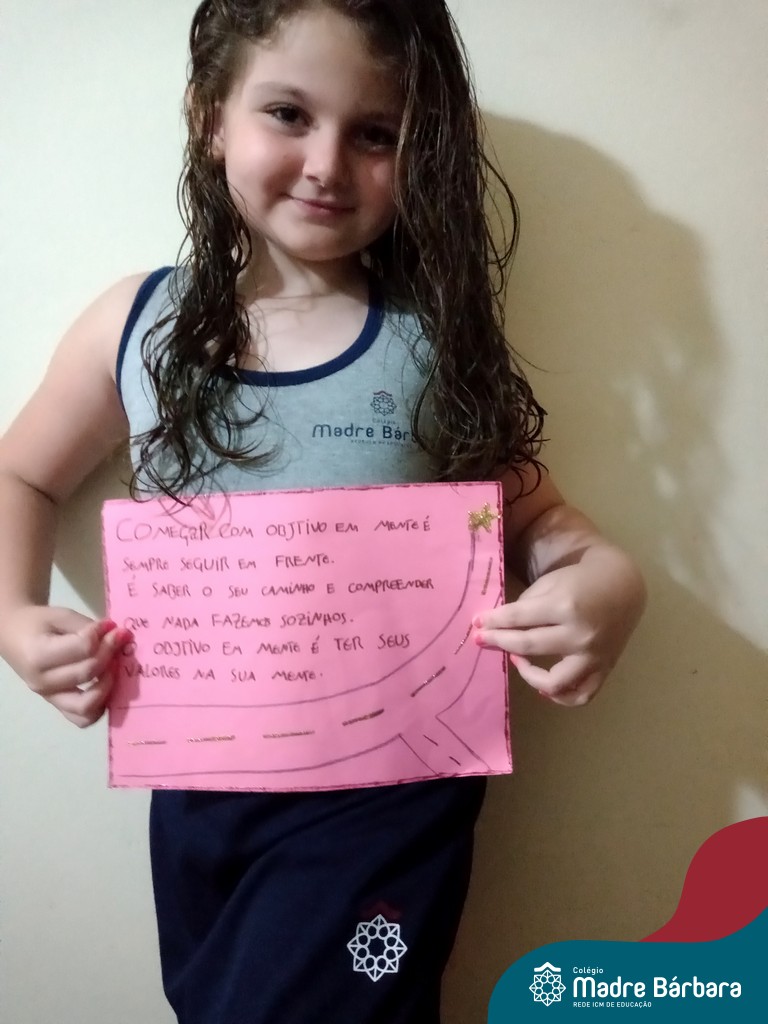 Colégio
Madre Bárb
COMEÇAR COM OBJTIVO EM MENTE É
SEMPRE SEGUIR EM FRENTE.
É SABER O SEU CAMINHO E COMPREENDER
QUE NADA FAZEMOS SOZINHOS.
O OBJTIVO EM MENTE É TER SEUS
VALORES NA SUA MENTE.
Colégio
Madre Bárbara
REDE ICM DE EDUCAÇÃO